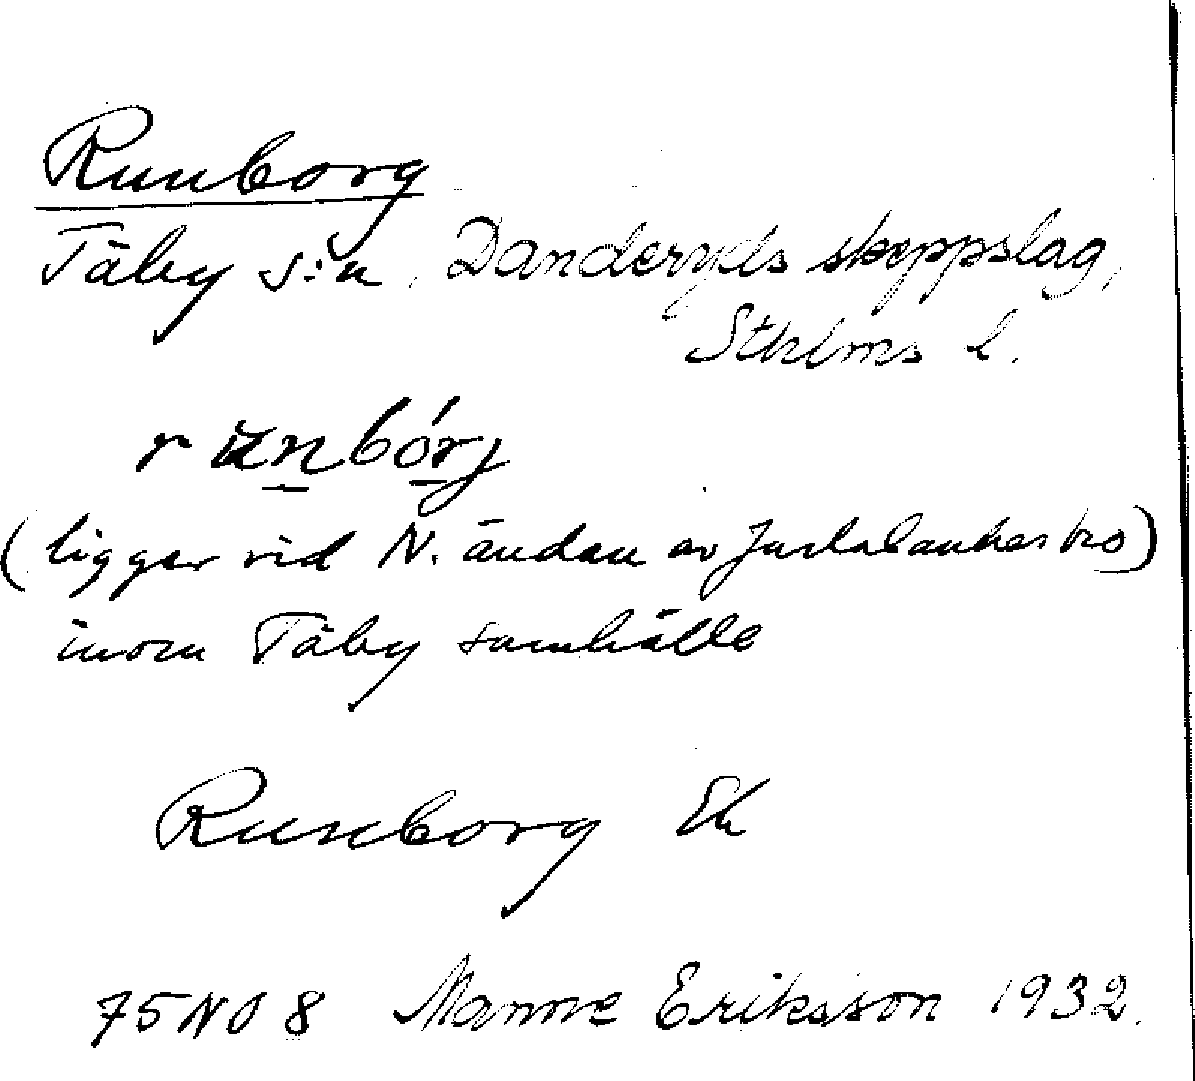 Runborg
Täby s:n, Danderyds skeppslag,
Sthlms l.
runbórj
(ligger vid N. ändan av Jarlabankes bro)
inom Täby samhälle
Runborg Ek
75 NO 8 Manne Eriksson 1932.